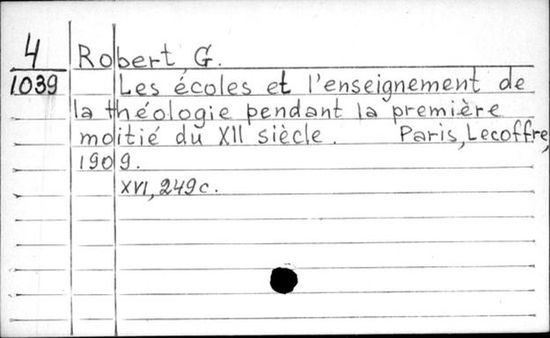 4 Robert, G.
1039 Les écoles et l'enseignement de
la théologie pendant la première
moitié du XII siècle. Paris, Lecoffre,
1909.
XVI, 249 c.